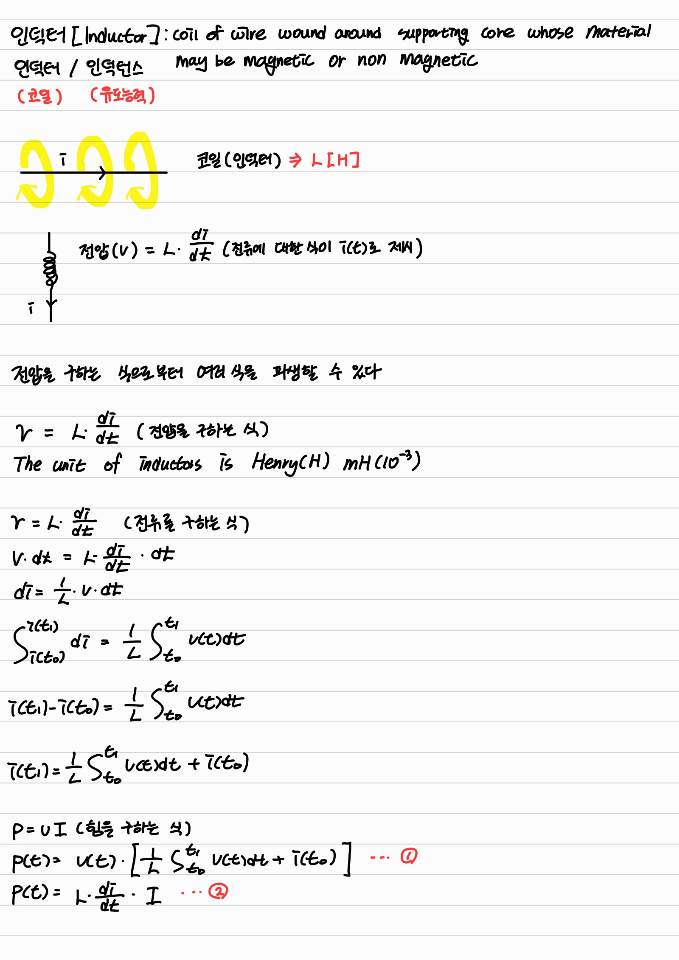 인덕터 [Inductor] : coil of wire wound around supporting core whose material
인덕터 / 인덕턴스 may be magnetic or non magnetic
(코일) (유도능력)
i
코일(인덕터) ⇒ L[H]
전압(v) = L· di/dt (전류에 대한 식이 i(t)로 제시)
i
전압을 구하는 식으로부터 여러 식을 파생할 수 있다
v = L· di/dt (전압을 구하는 식)
The unit of inductors is Henry(H) mH(10⁻³)
v = L· di/dt (전류를 구하는 식)
v·dt = L· di/dt · dt
di = 1/L · v·dt
∫_{i(t₀)}^{i(t₁)} di = 1/L ∫_{t₀}^{t₁} v(t)dt
i(t₁)-i(t₀) = 1/L ∫_{t₀}^{t₁} v(t)dt
i(t₁) = 1/L ∫_{t₀}^{t₁} v(t)dt + i(t₀)
P = vI (힘을 구하는 식)
p(t) = v(t)·[1/L ∫_{t₀}^{t₁} v(t)dt + i(t₀)] ··· ①
p(t) = L· di/dt · I ··· ②